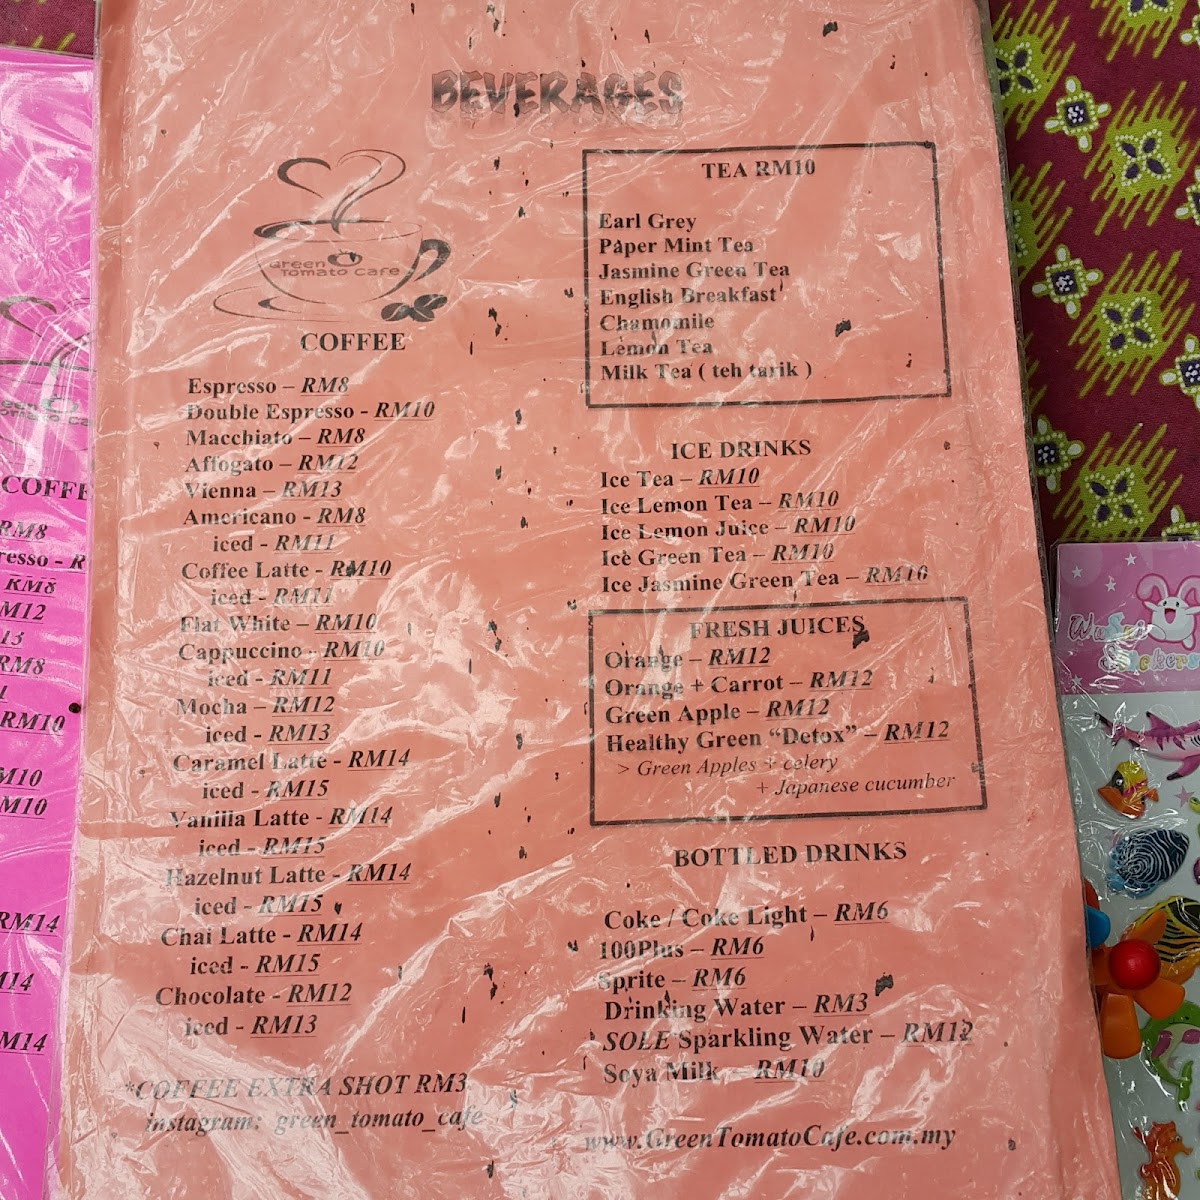 BEVERAGES
Green
Tomato Cafe
COFFEE
Espresso – RM8
Double Espresso - RM10
Macchiato – RM8
Affogato – RM12
Vienna – RM13
Americano - RM8
iced - RM11
Coffee Latte - RM10
iced - RM11
Flat White – RM10
Cappuccino - RM10
iced - RM11
Mocha – RM12
iced - RM13
Caramel Latte - RM14
iced - RM15
Vanilla Latte - RM14
iced - RM15
Hazelnut Latte - RM14
iced - RM15
Chai Latte - RM14
iced - RM15
Chocolate - RM12
iced - RM13
*COFFEE EXTRA SHOT RM3
instagram: green_tomato_cafe
TEA RM10
Earl Grey
Paper Mint Tea
Jasmine Green Tea
English Breakfast
Chamomile
Lemon Tea
Milk Tea ( teh tarik )
ICE DRINKS
Ice Tea – RM10
Ice Lemon Tea – RM10
Ice Lemon Juice – RM10
Ice Green Tea – RM10
Ice Jasmine Green Tea – RM10
FRESH JUICES
Orange – RM12
Orange + Carrot – RM12
Green Apple – RM12
Healthy Green “Detox” – RM12
> Green Apples + celery
+ Japanese cucumber
BOTTLED DRINKS
Coke / Coke Light – RM6
100Plus – RM6
Sprite – RM6
Drinking Water – RM3
SOLE Sparkling Water – RM12
Soya Milk – RM10
www.GreenTomatoCafe.com.my
COFFE
RM8
resso - R
RM8
M12
13
RM8
RM10
M10
M10
RM14
M14
M14
Stickers